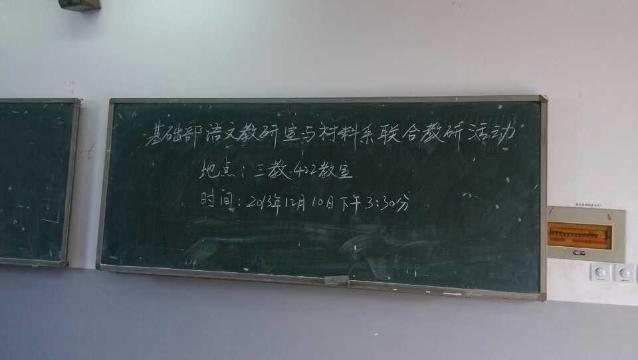 基础部语文教研室与材料系联合教研活动
地点：三教422教室
时间：2013年12月10日下午3:30分